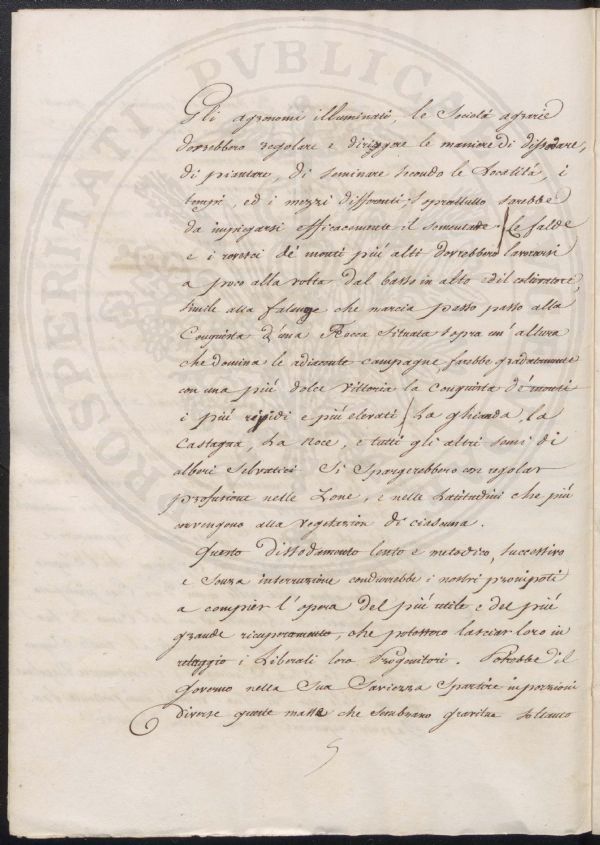 PROSPERITATI PUBLICAE
Gli agronomi illuminati, le Società agrarie
dovrebbero regolare e dirigere le maniere di dissodare,
di piantare, di seminare secondo le Località, i
tempi, ed i mezzi differenti; soprattutto sarebbe
da impiegarsi efficacemente il sementare. Le falde
e i rovesci de' monti più alti dovrebbero lavorarsi
a poco alla volta dal basso in alto ed il coltivatore,
simile alla falange che marcia passo passo alla
Conquista d'una Rocca Situata sopra un' altura
che domina le adiacente campagne, farebbe gradatamente
con una più dolce vittoria la conquista de' monti
i più rigidi e più elevati. La ghianda, la
Castagna, La Noce, e tutti gli altri semi di
alberi Selvatici Si Spargerebbero con regolar
profusione nelle Zone, e nelle Latitudini che più
convengono alla vegetazion di ciascuna.
Questo dissodamento lento e metodico, successivo
e Senza interruzione condurrebbe i nostri pronipoti
a compier l'opera del più utile e del più
grande ricuperamento, che potessero lasciar loro in
retaggio i Liberali loro Progenitori. Potrebbe il
Governo nella Sua Saviezza Spartire in porzioni
diverse queste masse che Sembrano gravitar soltanto
5